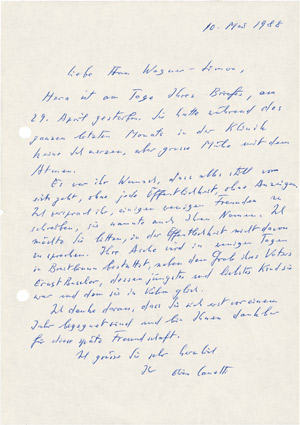 10. Mai 1988
Liebe Frau Wagner-Simon,
Hera ist am Tage Ihres Briefes, am
29. April gestorben. Sie hatte während des
ganzen letzten Monats in der Klinik
keine Schmerzen, aber grosse Mühe mit dem
Atmen.
Es war ihr Wunsch, dass alles still vor
sich geht, ohne jede Öffentlichkeit, ohne Anzeigen.
Ich versprach ihr, einigen wenigen Freunden zu
schreiben, sie nannte auch Ihren Namen. Ich
möchte Sie bitten, in der Öffentlichkeit nicht davon
zu sprechen. Ihre Asche wird in wenigen Tagen
in bestattet, neben dem Grab ihres Vaters
Ernst Buschor, dessen jüngstes und liebstes Kind sie
war und dem sie in Vielem glich.
Ich denke daran, dass Sie sich erst vor einem
Jahr begegnet sind und bin Ihnen dankbar
für diese späte Freundschaft.
Ich grüsse Sie sehr herzlich
Ihr Elias Canetti